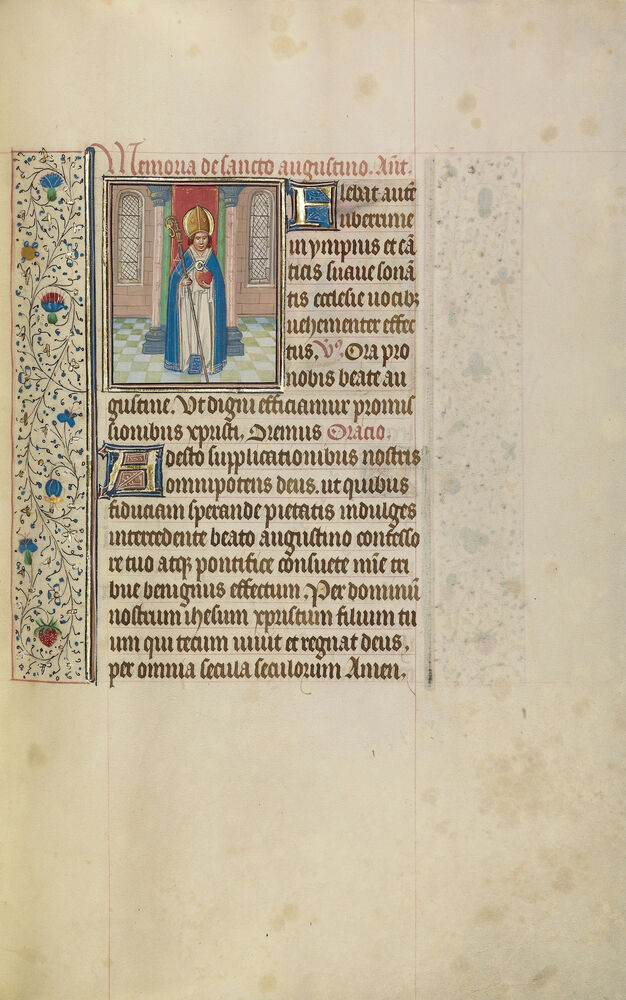 Memoria de sancto augustino. Añt.
Flebat aut̃
uberrime
in ympnis et cã
ticis suaue sonã
tis ecclesie uocibꝫ
uehementer effec
tus. V̊. Ora pro
nobis beate au
gustine. Vt digni efficiamur promis
sionibus xpristi. Oremus Oracio.
Adesto supplicationibus nostris
omnipotens deus. ut quibus
fiduciam sperande pietatis indulges
intercedente beato augustino confesso
re tuo atqꝫ pontifice cõsuete mĩe tri
bue benignus effectum. Per dominũ
nostrum ihesum xpristum filium tu
um qui tecum uiuit et regnat deus.
per omnia secula seculorum Amen.